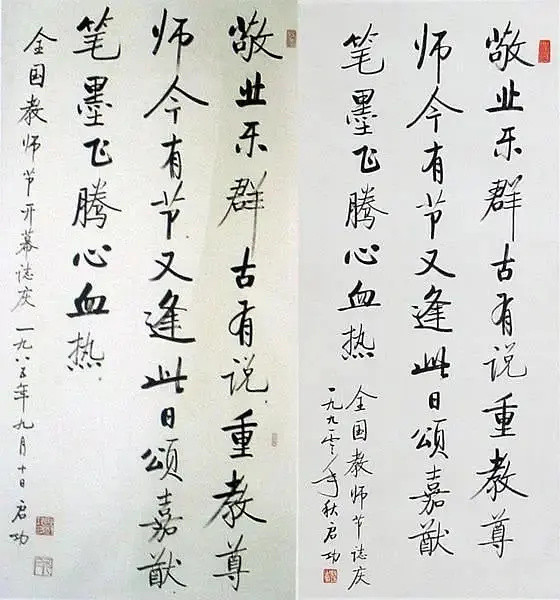 敬业乐群古有说重教尊
师今有节又逢此日颂嘉猷
笔墨飞腾心血热
全国教师节开幕誌庆 一九八五年九月十日 启功
敬业乐群古有说重教尊
师今有节又逢此日颂嘉猷
笔墨飞腾心血热
全国教师节誌庆
一九九零年秋启功